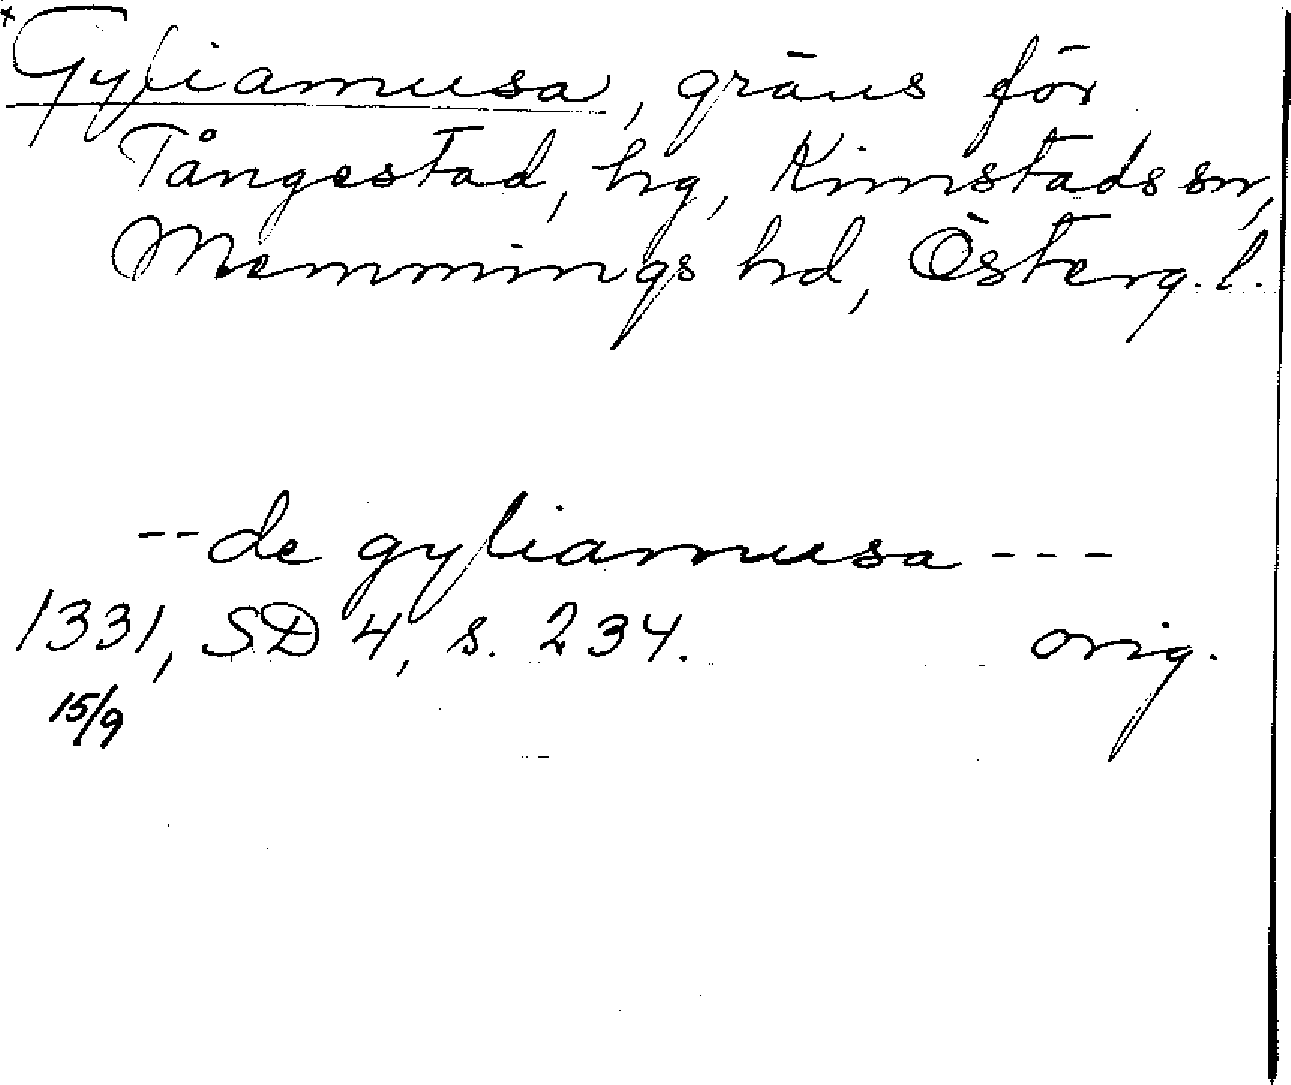 *Gyliamusa, gräns för
Tångestad, hg, Kimstads sn,
Memmings hd, Österg. l.
-- de gyliamusa ---
1331, SD 4, s. 234. orig.
15/9